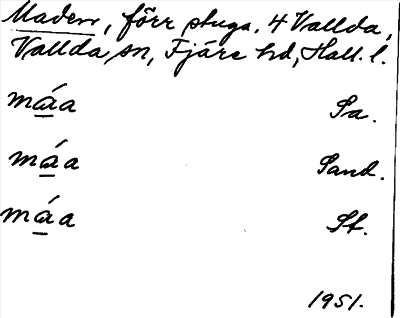 Maden, förr stuga, 4 Vallda,
Vallda sn, Fjäre hd, Hall. l.
máa Sa.
máa Sand.
máa St.
1951.